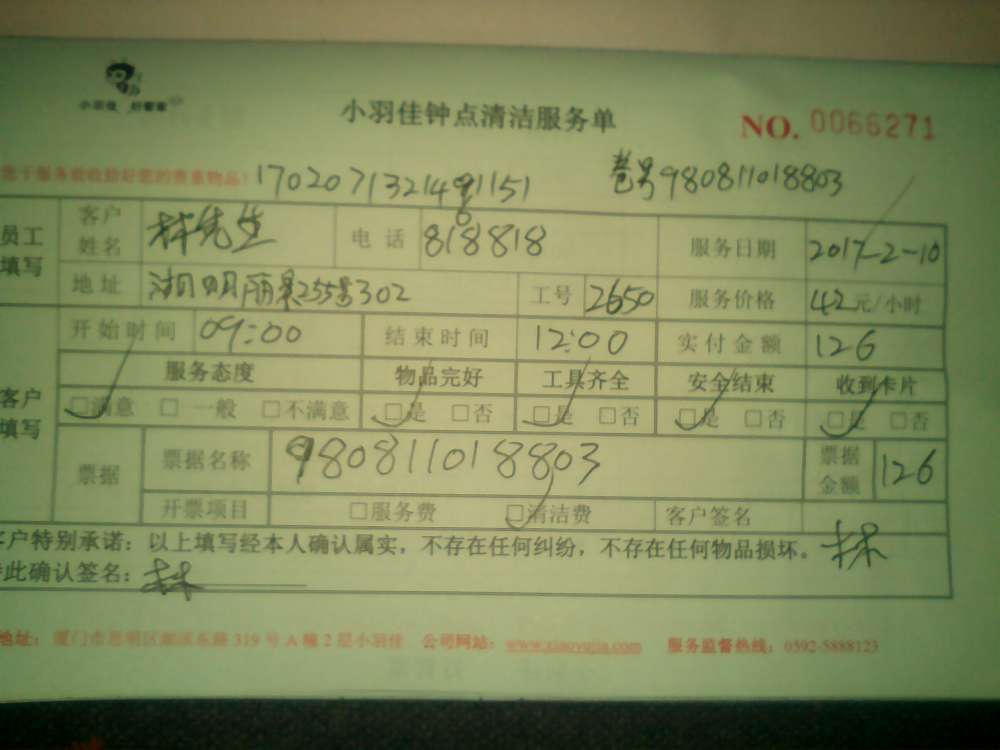 小羽佳 好管家
小羽佳钟点清洁服务单
NO. 0066271
卷号980811018803
员工填写
客户姓名 林先生 电话 818818 服务日期 2017-2-10
地址 湖明雨景255号302 工号 2650 服务价格 42元/小时
客户填写
开始时间 09:00 结束时间 12:00 实付金额 126
服务态度 物品完好 工具齐全 安全结束 收到卡片
□满意 □一般 □不满意 □是 □否 □是 □否 □是 □否 □是 □否
票据 票据名称 980811018803 票据金额 126
开票项目 □服务费 □清洁费 客户签名
客户特别承诺：以上填写经本人确认属实，不存在任何纠纷，不存在任何物品损坏。 林
特此确认签名：林
地址：厦门市思明区湖滨东路 319 号 A 幢 2 层小羽佳 公司网站：www.xiaoyujia.com 服务监督热线：0592-5888123